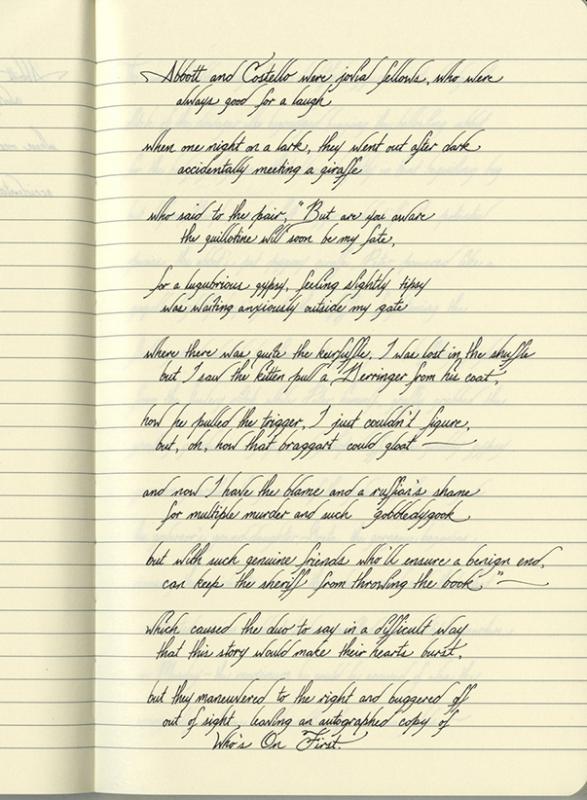 Abbott and Costello were jovial fellows, who were
always good for a laugh
when one night on a lark, they went out after dark
accidentally meeting a giraffe
who said to the pair, "But are you aware
the guillotine will soon be my fate,
for a lugubrious gypsy, feeling slightly tipsy
was waiting anxiously outside my gate
where there was quite the kerfuffle, I was lost in the shuffle
but I saw the kitten pull a Derringer from his coat,
how he pulled the trigger, I just couldn't figure,
but, oh, how that braggart could gloat —
and now I have the blame and a ruffian's shame
for multiple murder and such gobbledygook
but with such genuine friends who'll ensure a benign end,
can keep the sheriff from throwing the book" —
which caused the duo to say in a difficult way
that this story would make their hearts burst,
but they maneuvered to the right and buggered off
out of sight, leaving an autographed copy of
Who's On First.